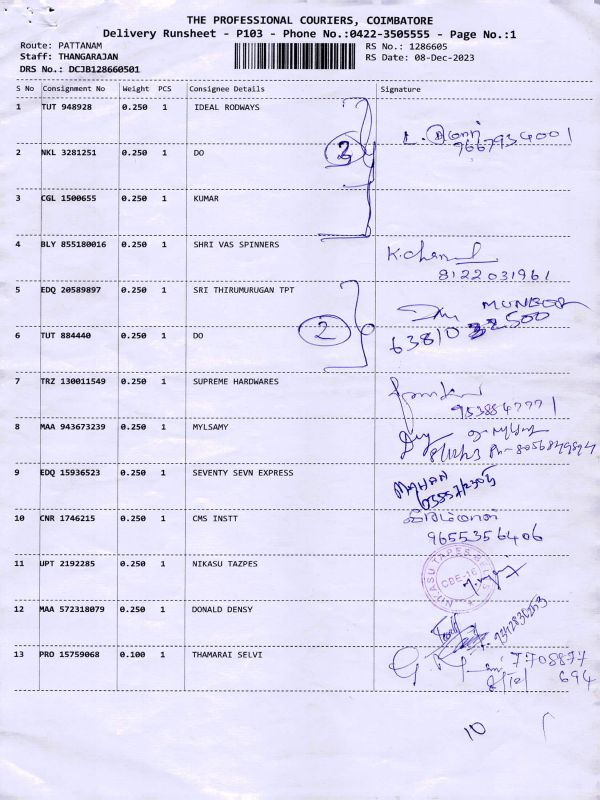 THE PROFESSIONAL COURIERS, COIMBATORE
Delivery Runsheet - P103 - Phone No.:0422-3505555 - Page No.:1
Route: PATTANAM RS No.: 1286605
Staff: THANGARAJAN RS Date: 08-Dec-2023
DRS No.: DCJB128660501
S No Consignment No Weight PCS Consignee Details Signature
1 TUT 948928 0.250 1 IDEAL RODWAYS
9667934001
2 NKL 3281251 0.250 1 DO 3
3 CGL 1500655 0.250 1 KUMAR
4 BLY 855180016 0.250 1 SHRI VAS SPINNERS
8122031961
5 EDQ 20589897 0.250 1 SRI THIRUMURUGAN TPT
2
6 TUT 884440 0.250 1 DO
7 TRZ 130011549 0.250 1 SUPREME HARDWARES
8 MAA 943673239 0.250 1 MYLSAMY
9 EDQ 15936523 0.250 1 SEVENTY SEVN EXPRESS
10 CNR 1746215 0.250 1 CMS INSTT
9655356406
11 UPT 2192285 0.250 1 NIKASU TAZPES
NIKASU TAPES CBE-16
12 MAA 572318079 0.250 1 DONALD DENSY
13 PRO 15759068 0.100 1 THAMARAI SELVI
7708877
694
10